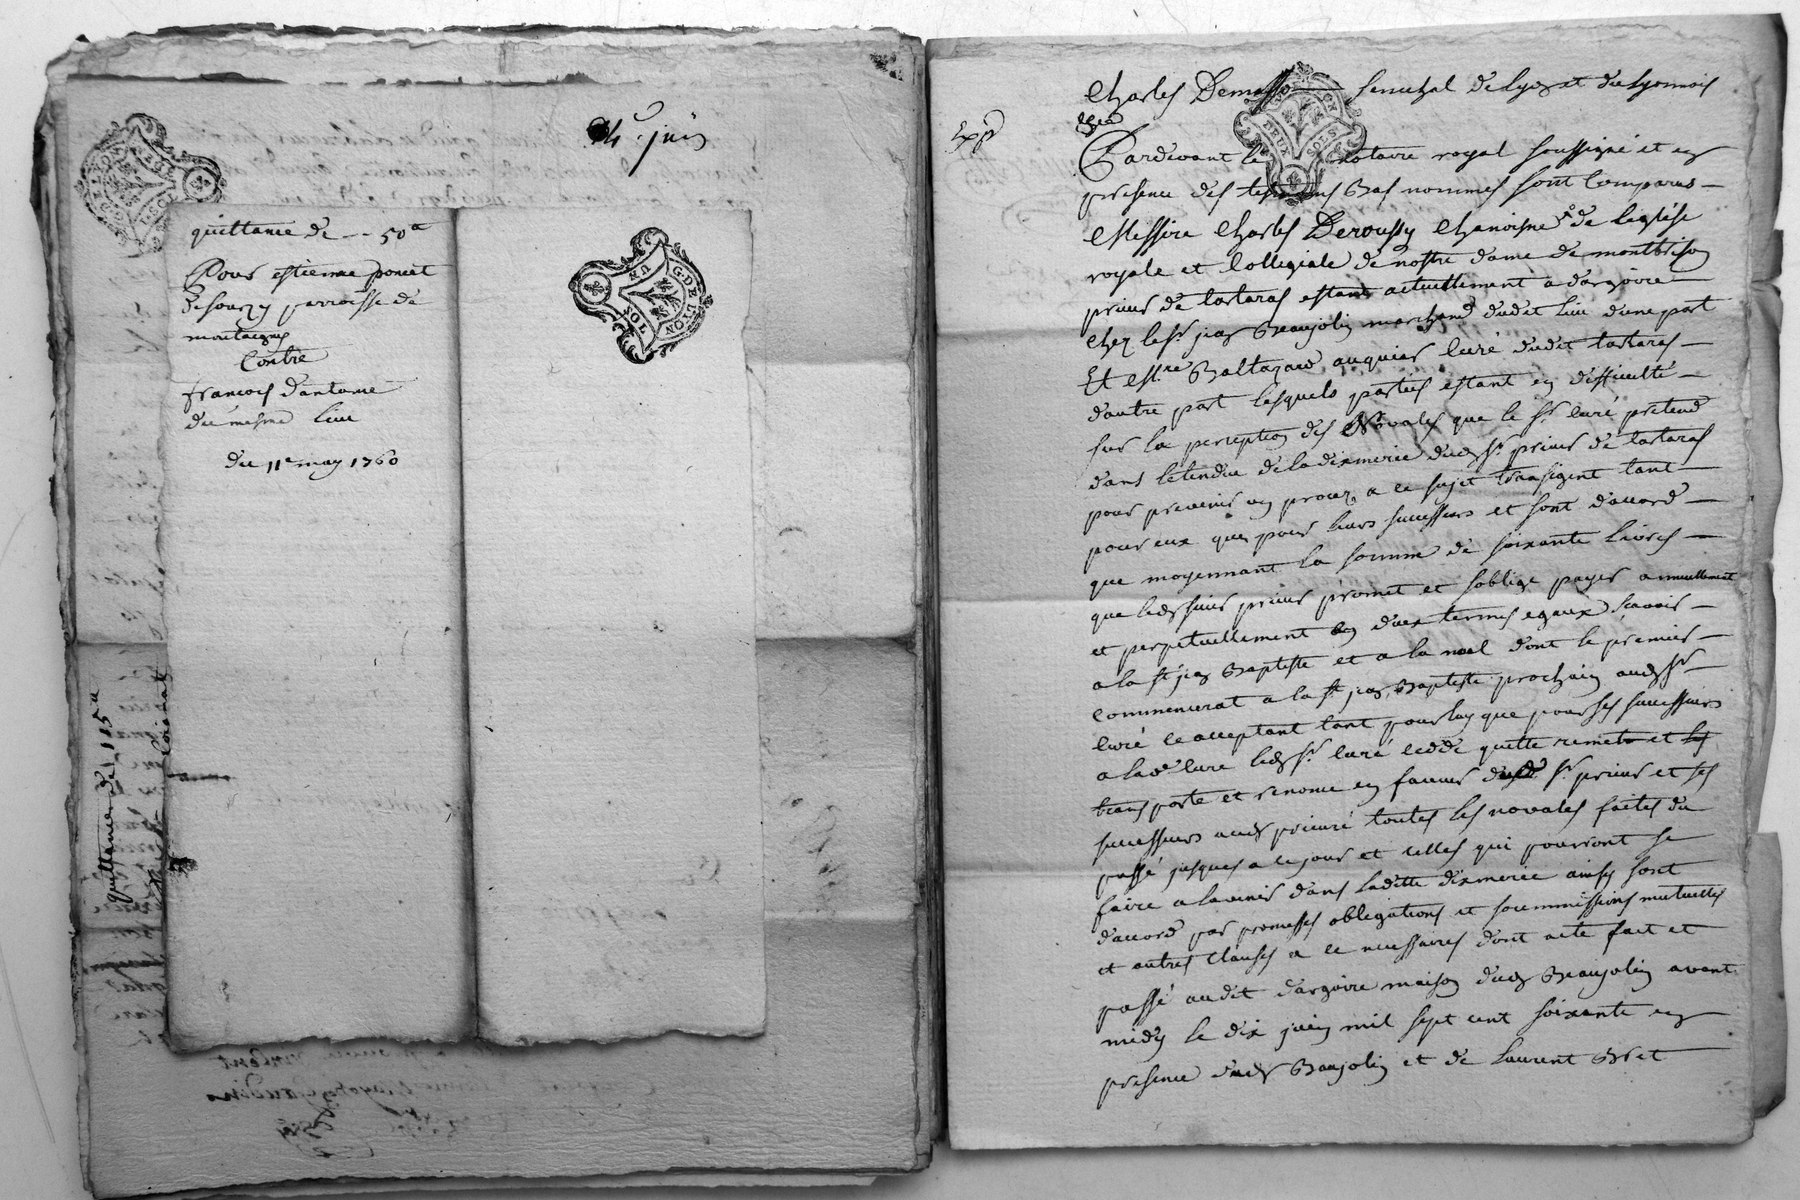 4e juin
quittance de -- 50lt
Pour estienne poncet
de souzy parroisse de
montagny
Contre
francois dantome
du mesme lieu
du 11e may 1760
quittance de 115lt
G. DE LYON
UN SOL
Exp
Charles Demasso senechal de Lyon et du Lyonnois
Pardevant le notaire royal soussigné et en
presence des tesmoins bas nommes sont comparus
Messire Charles Deroussy Chanoisne de leglise
royale et Collegiale de nostre dame de montbrison
prieur de tartaras estant actuellement a dargoire
chez le sr jean Beaujolin marchand dudit lieu dune part
Et Mre Baltazard auquier curé dudit tartaras
dautre part lesquels parties estant en difficulté
sur la perception des Novales que le sr curé pretend
dans letendue de la dixmerie dud sr prieur de tartaras
pour prevenir un procez a ce sujet transigent tant
pour eux que pour leurs successeurs et sont daccord
que moyennant la somme de soixante livres
que led sieur prieur promet et soblige payer annuellement
et perpetuellement en deux termes egaux scavoir
a la st jean Baptiste et a la noel dont le premier
commencerat a la st jean Baptiste prochain aud sr
curé ce acceptant tant pour luy que pour ses successeurs
a lad cure led sr curé cedde quitte remet et
transporte et renonce en faveur dud sr prieur et ses
successeurs aud prieuré toutes les novales faites du
passé jusques a ce jour et celles qui pourront se
faire a lavenir dans laditte dixmerie ainsy sont
daccord par promesses obligations et soummissions mutuelles
et autres clauses a ce necessaires dont acte fait et
passé audit dargoire maison dud Beaujolin avant
midy le dix juin mil sept cent soixante en
presence dud Beaujolin et de Laurent Bret